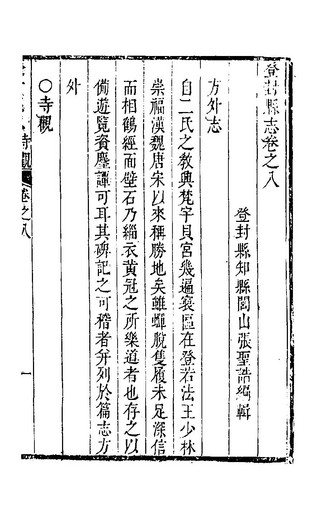 登封縣志卷之八
登封縣知縣閭山張聖誥編輯
方外志
自二氏之敎興梵宇貝宮幾遍寰區在登若法王少林
崇福漢魏唐宋以來稱勝地矣雖蟬脫隻履未足深信
而相鶴經面壁石乃緇衣黃冠之所樂道者也存之以
備遊覽資麈譚可耳其碑記之可稽者幷列於篇志方
外
○寺觀
寺觀
卷之八
一